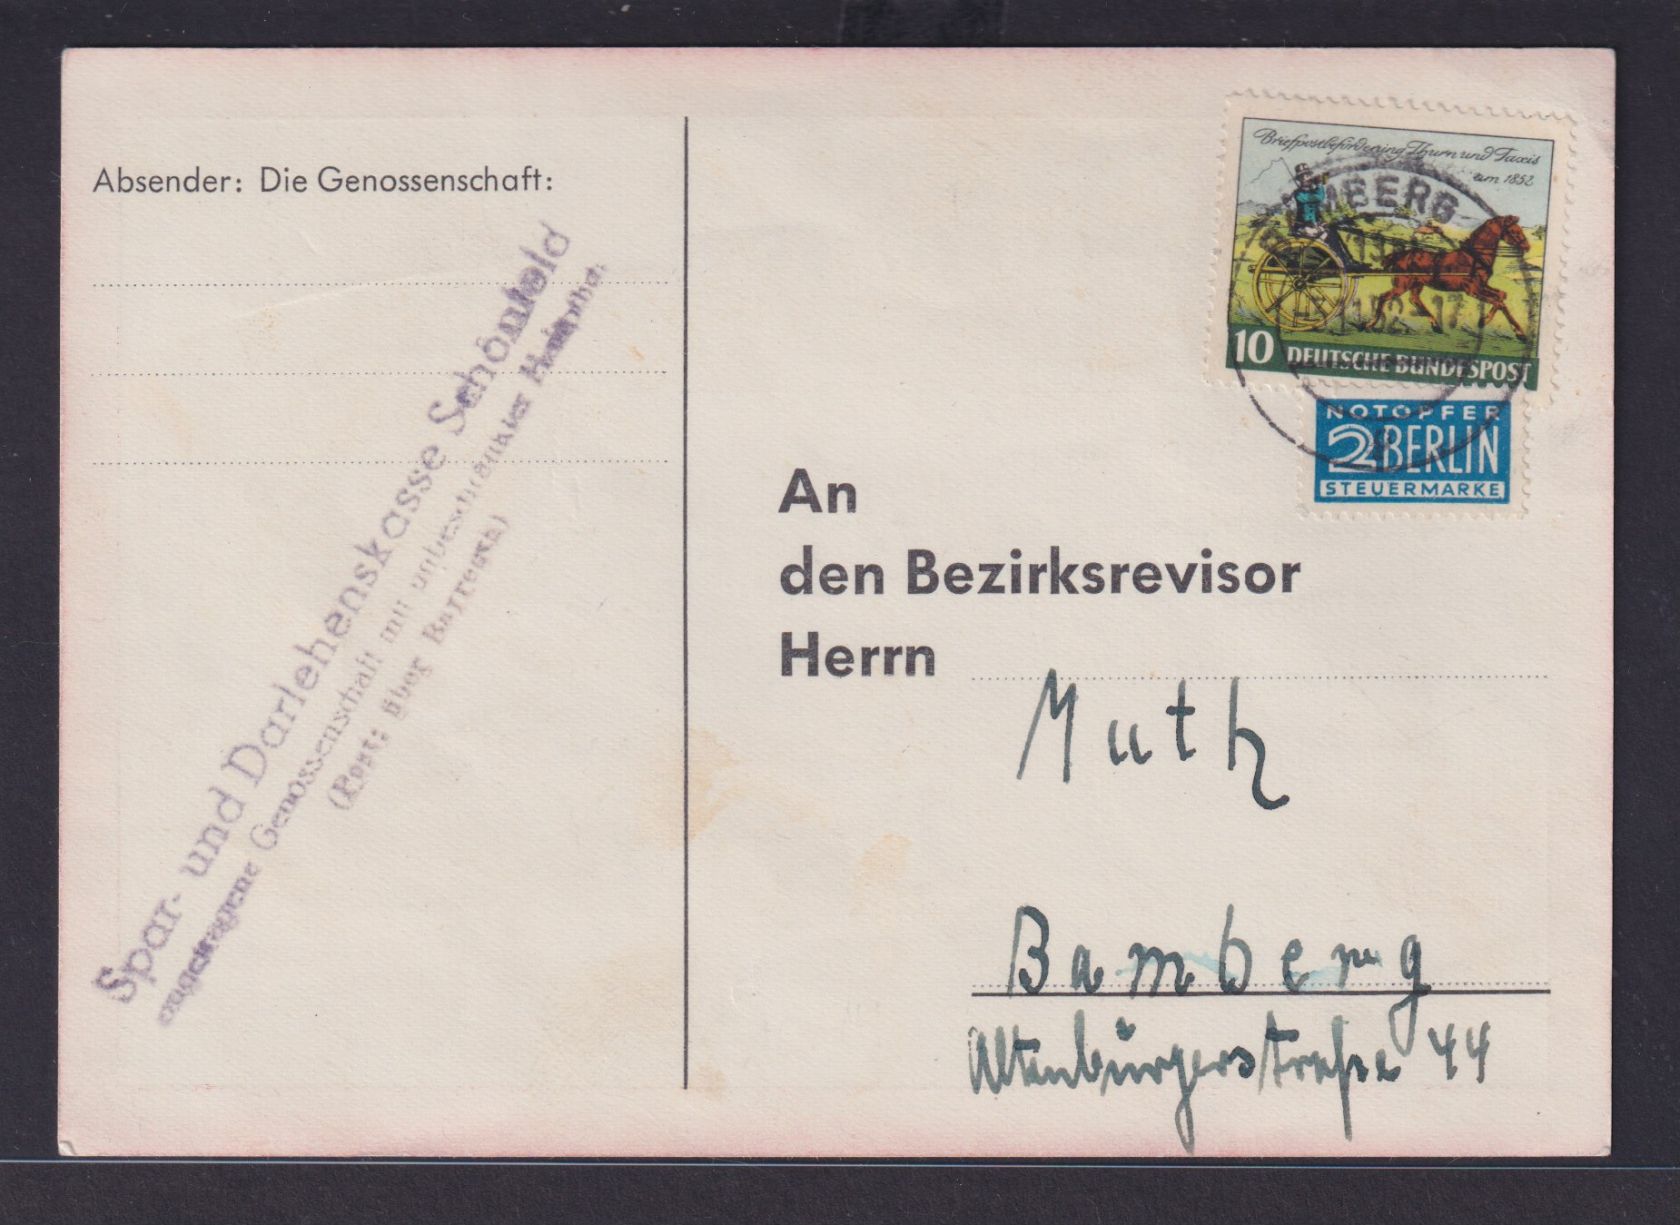 Absender: Die Genossenschaft:
Spar- und Darlehenskasse Schönfeld
eingetragene Genossenschaft mit unbeschränkter Haftpflicht
(Post: über Bayreuth)
Briefpostbeförderung Thurn und Taxis
um 1852
BAMBERG
10 DEUTSCHE BUNDESPOST
NOTOPFER
2 BERLIN
STEUERMARKE
An
den Bezirksrevisor
Herrn
Muth
Bamberg
Altenburgerstraße 44